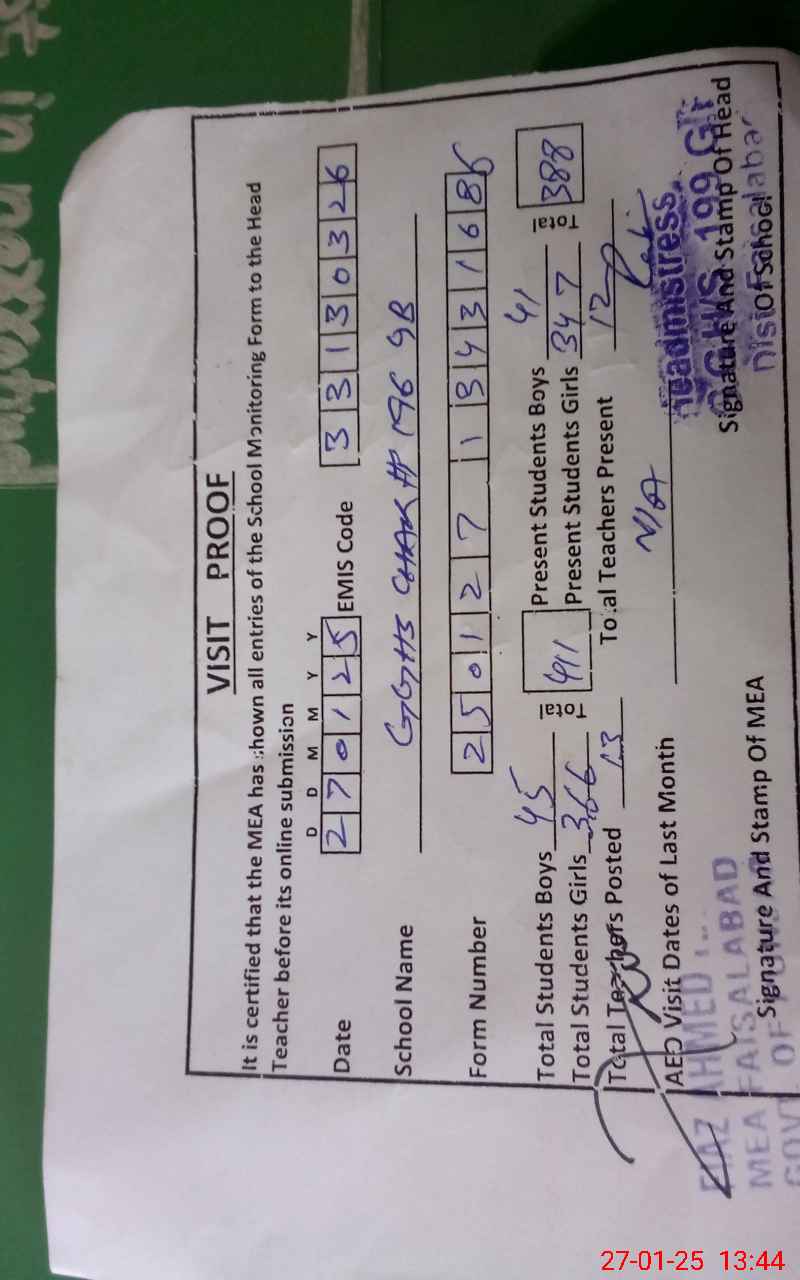 VISIT PROOF
It is certified that the MEA has shown all entries of the School Monitoring Form to the Head
Teacher before its online submission
D D M M Y Y
Date 2 7 0 1 2 5 EMIS Code 3 3 1 3 0 3 2 6
School Name GGHS CHAK # 196 GB
Form Number 2 5 0 1 2 7 1 3 4 3 1 6 8 6
Total Students Boys 45 Total 411 Present Students Boys 41 Total 388
Total Students Girls 366 Present Students Girls 347
Total Teachers Posted 13 Total Teachers Present 12
AEO Visit Dates of Last Month N/A
Headmistress
AHMED
MEA FAISALABAD
GOVT. OF
Signature And Stamp Of MEA
Signature And Stamp Of Head
Of School
27-01-25 13:44